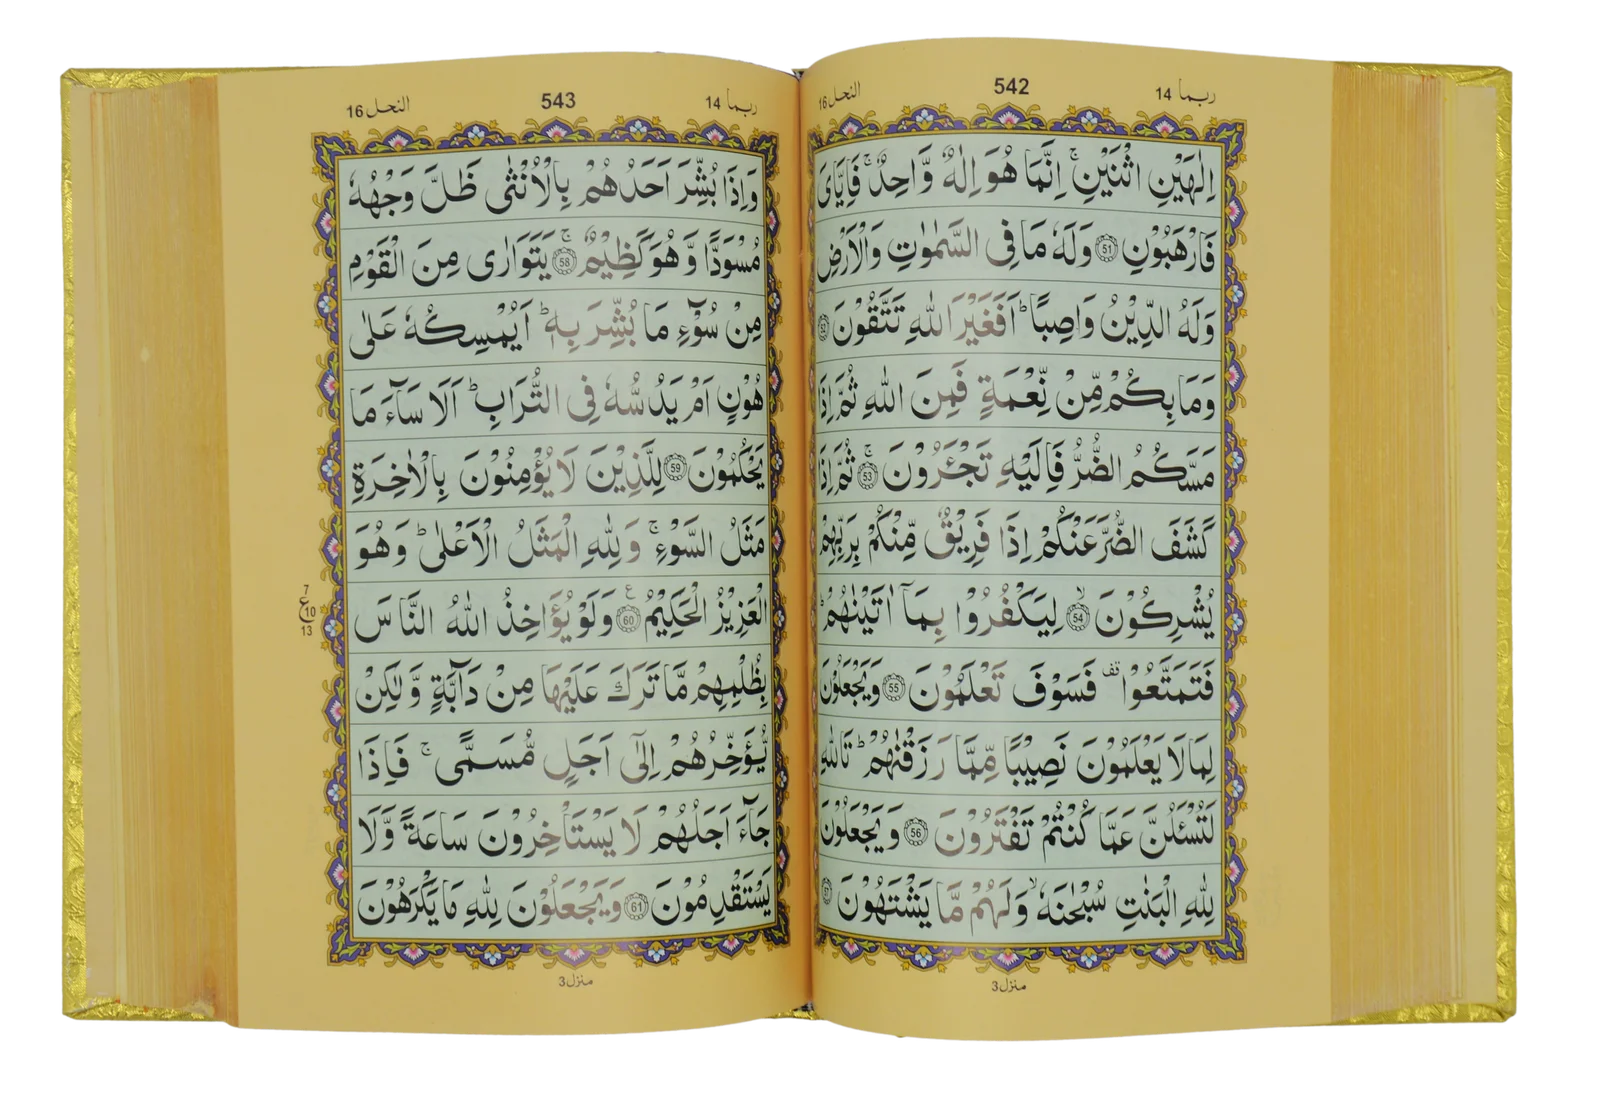 ربما 14
542
النحل 16
اِلٰهَيْنِ اثْنَيْنِ ۚ اِنَّمَا هُوَ اِلٰهٌ وَّاحِدٌ ۚ فَاِيَّايَ
فَارْهَبُوْنِ 51 وَلَهٗ مَا فِى السَّمٰوٰتِ وَالْاَرْضِ
وَلَهُ الدِّيْنُ وَاصِبًا ؕ اَفَغَيْرَ اللّٰهِ تَتَّقُوْنَ 52
وَمَا بِكُمْ مِّنْ نِّعْمَةٍ فَمِنَ اللّٰهِ ثُمَّ اِذَا
مَسَّكُمُ الضُّرُّ فَاِلَيْهِ تَجْـَٔرُوْنَ ۚ 53 ثُمَّ اِذَا
كَشَفَ الضُّرَّ عَنْكُمْ اِذَا فَرِيْقٌ مِّنْكُمْ بِرَبِّهِمْ
يُشْرِكُوْنَ ۙ 54 لِيَكْفُرُوْا بِمَاۤ اٰتَيْنٰهُمْ ؕ
فَتَمَتَّعُوْا قف فَسَوْفَ تَعْلَمُوْنَ 55 وَيَجْعَلُوْنَ
لِمَا لَا يَعْلَمُوْنَ نَصِيْبًا مِّمَّا رَزَقْنٰهُمْ ؕ تَاللّٰهِ
لَتُسْـَٔلُنَّ عَمَّا كُنْتُمْ تَفْتَرُوْنَ 56 وَيَجْعَلُوْنَ
لِلّٰهِ الْبَنٰتِ سُبْحٰنَهٗ ۙ وَلَهُمْ مَّا يَشْتَهُوْنَ 57
منزل 3
ربما 14
543
النحل 16
وَاِذَا بُشِّرَ اَحَدُهُمْ بِالْاُنْثٰى ظَلَّ وَجْهُهٗ
مُسْوَدًّا وَّهُوَ كَظِيْمٌ ۚ 58 يَتَوَارٰى مِنَ الْقَوْمِ
مِنْ سُوْٓءِ مَا بُشِّرَ بِهٖ ؕ اَيُمْسِكُهٗ عَلٰى
هُوْنٍ اَمْ يَدُسُّهٗ فِى التُّرَابِ ؕ اَلَا سَآءَ مَا
يَحْكُمُوْنَ 59 لِلَّذِيْنَ لَا يُؤْمِنُوْنَ بِالْاٰخِرَةِ
مَثَلُ السَّوْءِ ۚ وَلِلّٰهِ الْمَثَلُ الْاَعْلٰى ؕ وَهُوَ
الْعَزِيْزُ الْحَكِيْمُ ع 60 وَلَوْ يُؤَاخِذُ اللّٰهُ النَّاسَ
7
ع 10
13
بِظُلْمِهِمْ مَّا تَرَكَ عَلَيْهَا مِنْ دَآبَّةٍ وَّلٰكِنْ
يُّؤَخِّرُهُمْ اِلٰٓى اَجَلٍ مُّسَمًّى ۚ فَاِذَا
جَآءَ اَجَلُهُمْ لَا يَسْتَاْخِرُوْنَ سَاعَةً وَّلَا
يَسْتَقْدِمُوْنَ 61 وَيَجْعَلُوْنَ لِلّٰهِ مَا يَكْرَهُوْنَ
منزل 3